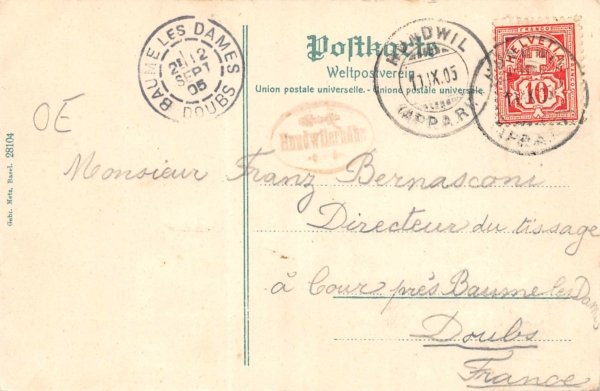 BAUME LES DAMES
12
SEPT
05
DOUBS
Postkarte
Weltpostverein
Union postale universelle. - Unione postale universale
HUNDWIL
11.IX.05
(APPAR.)
HELVETIA
FRANCO
10
HUNDWIL
(APPAR.)
Hundwilerhöhe
OE
Monsieur Franz Bernasconi
Directeur du tissage
à Cour près Baume les Dames
Doubs
France
Gebr. Metz, Basel. 28104